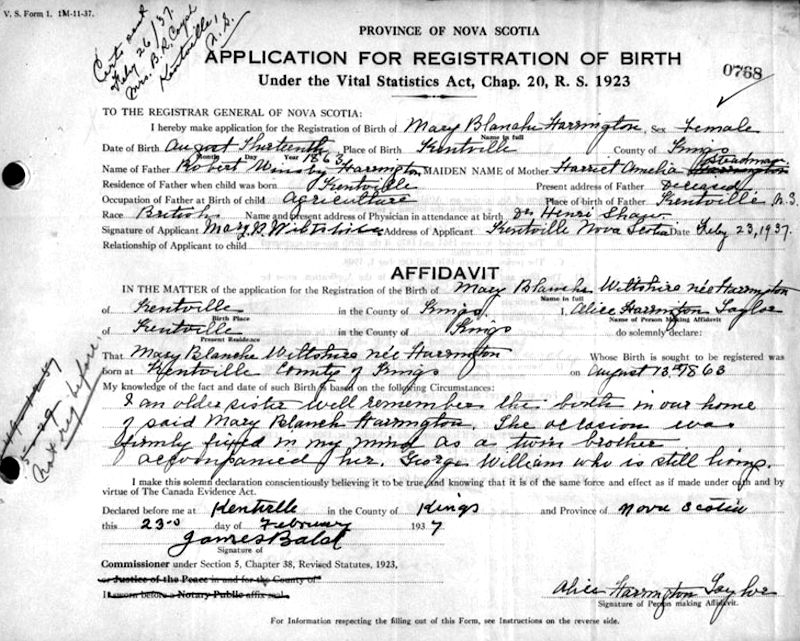 V. S. Form 1. 1M-11-37.
Certs sent
Feby 26/37.
Mrs. B. R.
Kentville,
N. S.
PROVINCE OF NOVA SCOTIA
APPLICATION FOR REGISTRATION OF BIRTH
0768
Under the Vital Statistics Act, Chap. 20, R. S. 1923
TO THE REGISTRAR GENERAL OF NOVA SCOTIA:
I hereby make application for the Registration of Birth of Mary Blanche Harrington, Sex Female
Name in full
Date of Birth August Thirteenth 1863 Place of Birth Kentville County of Kings
Month Day Year
Name of Father Robert Harrington MAIDEN NAME of Mother Harriet Amelia Harrington
Residence of Father when child was born Kentville Present address of Father Deceased
Occupation of Father at Birth of child Agriculture Place of birth of Father Kentville N.S.
Race British Name and present address of Physician in attendance at birth Dr. Henri Shaw
Signature of Applicant Mary B. Wiltshire Address of Applicant Kentville Nova Scotia Date Feby 23, 1937.
Relationship of Applicant to child
AFFIDAVIT
IN THE MATTER of the application for the Registration of the Birth of Mary Blanche Wiltshire née Harrington
Name in full
of Kentville in the County of Kings I, Alice Harrington Taylor
Birth Place Name of Person Making Affidavit
of Kentville in the County of Kings do solemnly declare:
Present Residence
That Mary Blanche Wiltshire née Harrington Whose Birth is sought to be registered was
born at Kentville County of Kings on August 13th 1863
My knowledge of the fact and date of such Birth is based on the following Circumstances:
I an older sister well remember the birth in our home
of said Mary Blanch Harrington. The occasion was
firmly fixed in my mind as a twin brother
accompanied her. George William who is still living.
Not reg. before.
I make this solemn declaration conscientiously believing it to be true, and knowing that it is of the same force and effect as if made under oath and by
virtue of The Canada Evidence Act.
Declared before me at Kentville in the County of Kings and Province of Nova Scotia
this 23rd day of February 1937
James Bald
Signature of
Commissioner under Section 5, Chapter 38, Revised Statutes, 1923,
or Justice of the Peace in and for the County of
If sworn before a Notary Public affix seal.
Alice Harrington Taylor
Signature of Person making Affidavit.
For Information respecting the filling out of this Form, see Instructions on the reverse side.